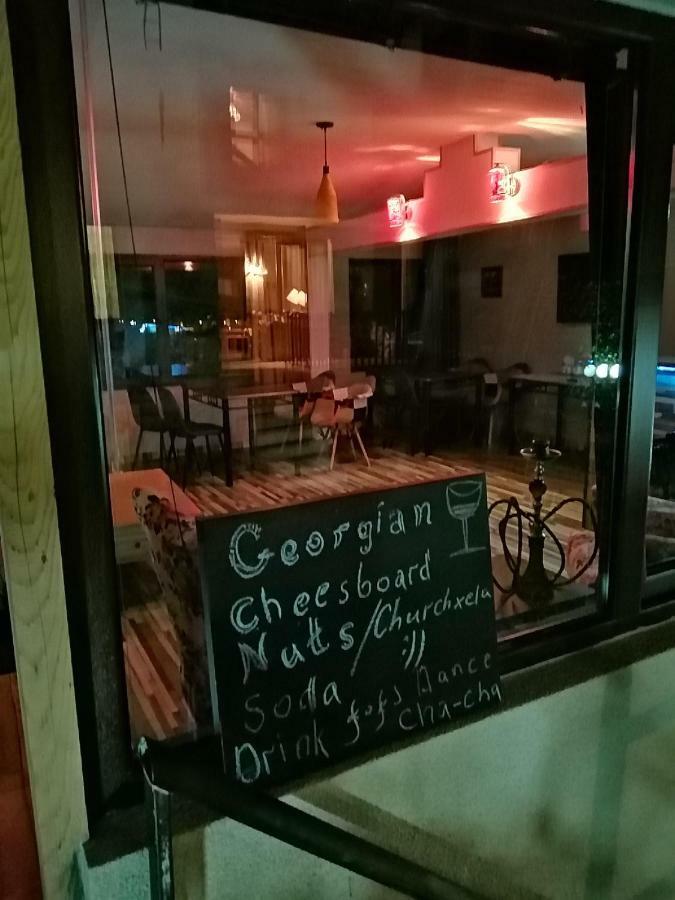 Georgian
Cheesboard
Nuts/Churchxela
:))
Soda
Drink Dance
cha-cha